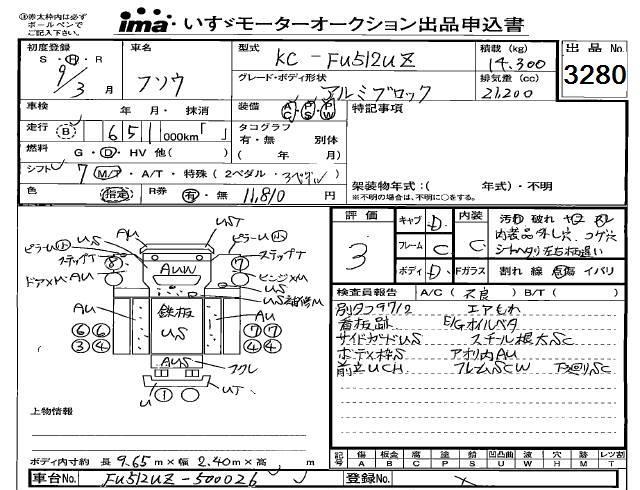 ③赤太枠内は必ず
ボールペンで
ご記入下さい。
ima いすゞモーターオークション出品申込書
初度登録 車名 型式 積載 (kg) 出品 No.
S・H・R 9/3 月 フソウ KC-FU512UZ 14,300 3280
グレード・ボディ形状 排気量 (cc)
アルミブロック 21,200
車検 年 月・抹消 装備 AC PS PW 特記事項
走行 B 651 000km「 」 タコグラフ
有・無 別体
燃料 G・D・HV 他( ) ( 年 月)
シフト 7 M/・A/T・特殊(2ペダル・3ペダル)
色 指定 R券 有・無 11,810 円
架装物年式:( 年式)・不明
※不明の場合は、不明に○をする。
評価 3
キャブ D 内装 C 汚 破れ
フレーム C 内装品外し穴、コゲ穴
ボディ D Fガラス 割れ 線 点傷 イバリ
検査員報告 A/C( 不良 ) B/T( )
別タコ97/2 エアもれ
看板跡 E/Gオイルベタ
サイドガードUS スチール根太SC
アオリ内AU
前立UCH フレームSCW 下廻りSC
ピラーU小 US AU UST ピラーU小
ステップT ステップT
⑧ AUW ⑦
ドアXM AU ヒンジXM
US
US補修M
AU 鉄板 US AU
⑥⑥ ⑦⑦
③③ ④④
AUS フクレ
U ① UT
上物情報
ボディ内寸約 長 9.65 m×幅 2.40 m×高 m
記号 傷 板金 腐 塗 部 凹凸曲 波 穴 跡 レツ割
A B C P S U W H M T
車台No. FU512UZ-500026 登録No.